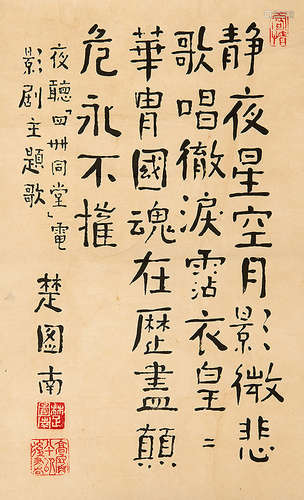 静夜星空月影微悲
歌唱徹淚霑衣皇〻
華胄國魂在歷盡顛
危永不摧
夜聽「四世同堂」電
影劇主題歌
楚圖南
楚圖南